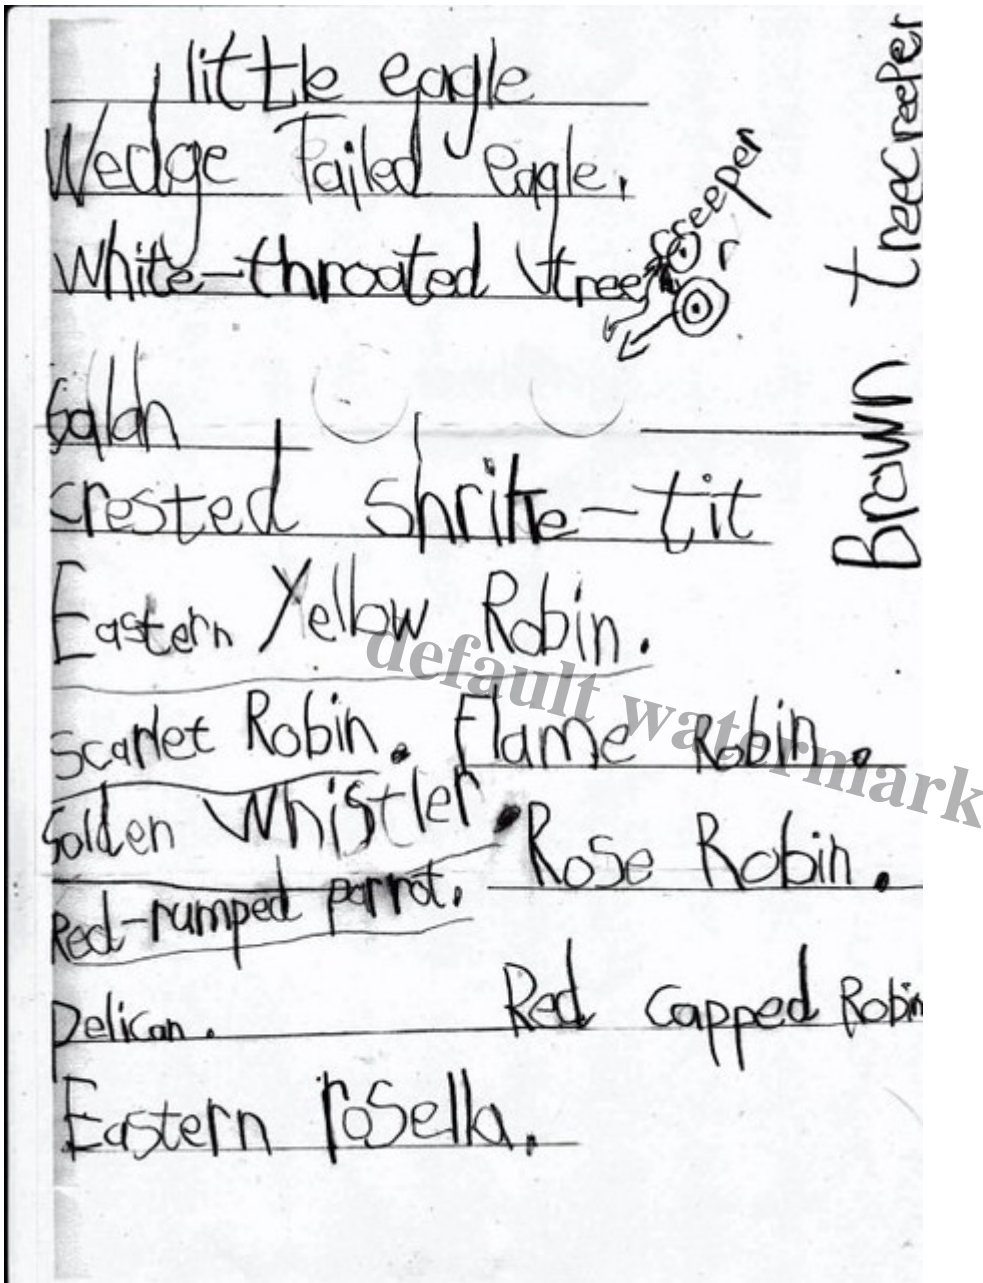 little eagle
Wedge Tailed eagle.
White-throated treecreeper
Galah
crested shrike-tit
Eastern Yellow Robin.
Scarlet Robin. Flame Robin.
Golden Whistler. Rose Robin.
Red-rumped parrot.
Pelican. Red capped Robin
Eastern rosella.
Brown treecreeper
default watermark